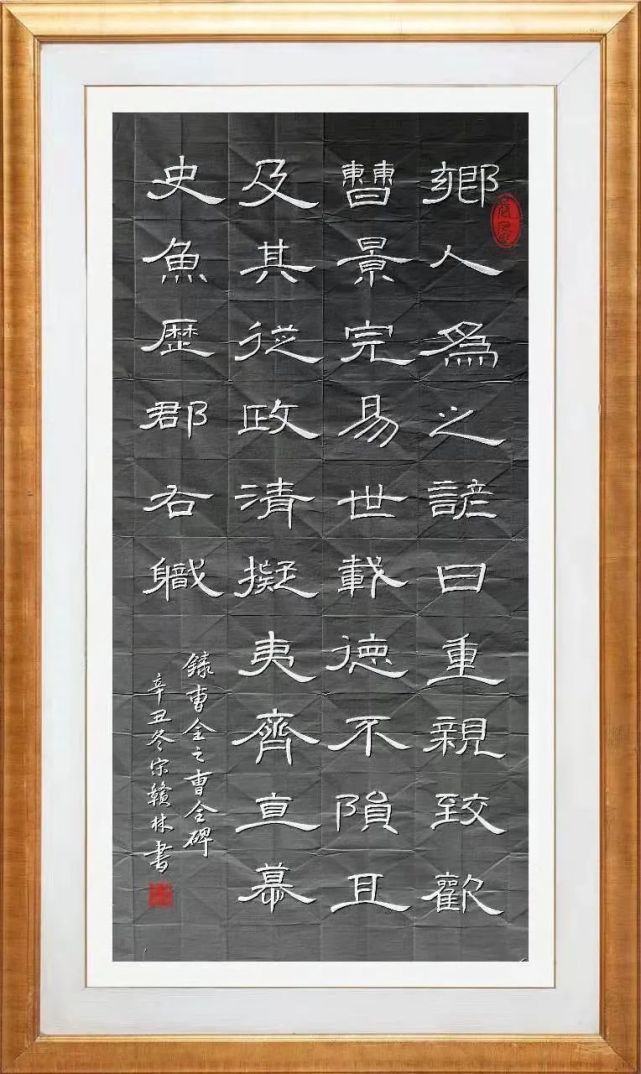 鄉人爲之諺曰重親致歡
曹景完易世載德不隕且
及其從政清擬夷齊直慕
史魚歷郡右職
錄曹全之曹全碑
辛丑冬宋贛林書